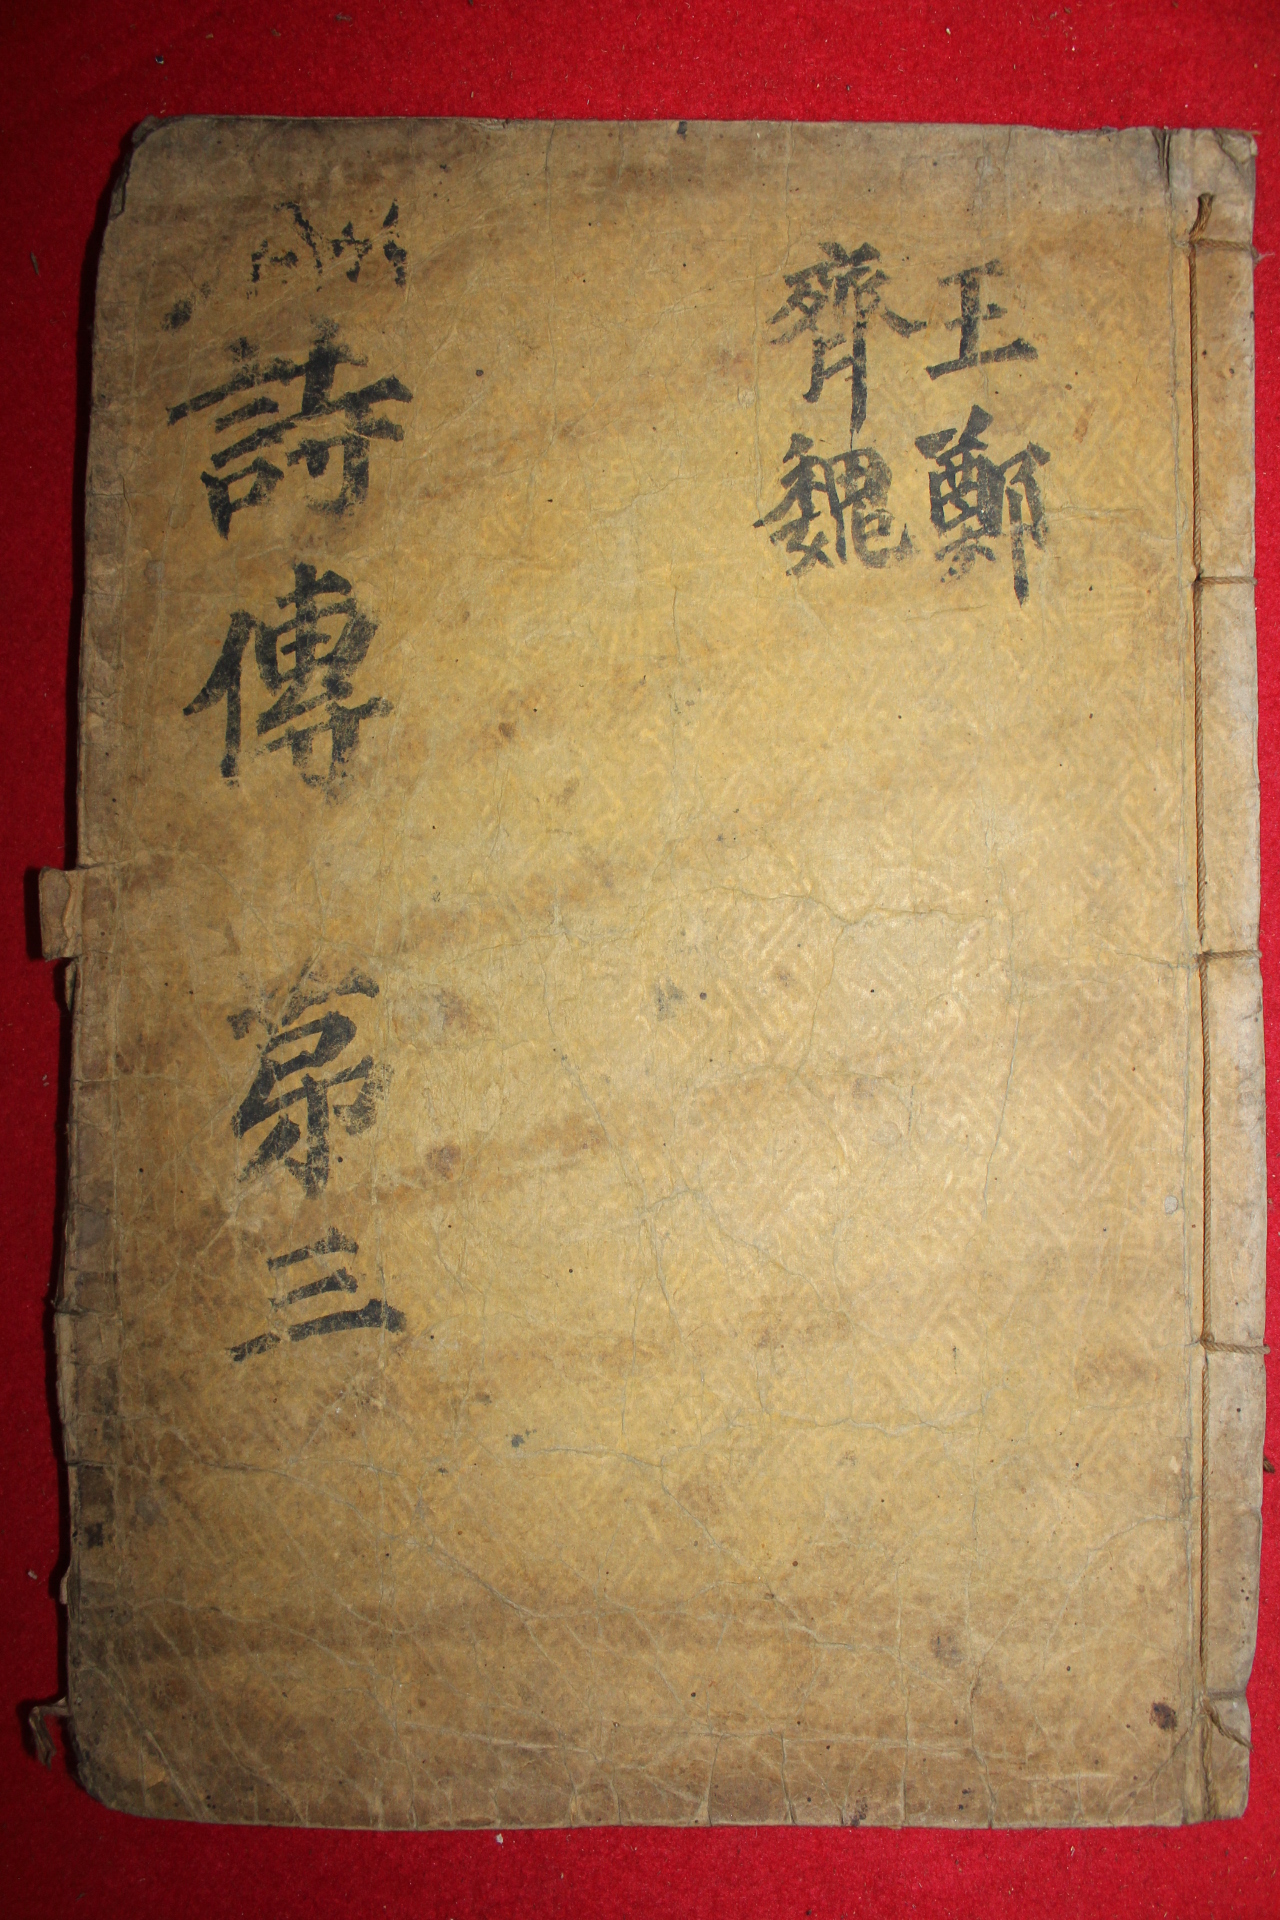 王鄭
齊魏
詩傳 第三